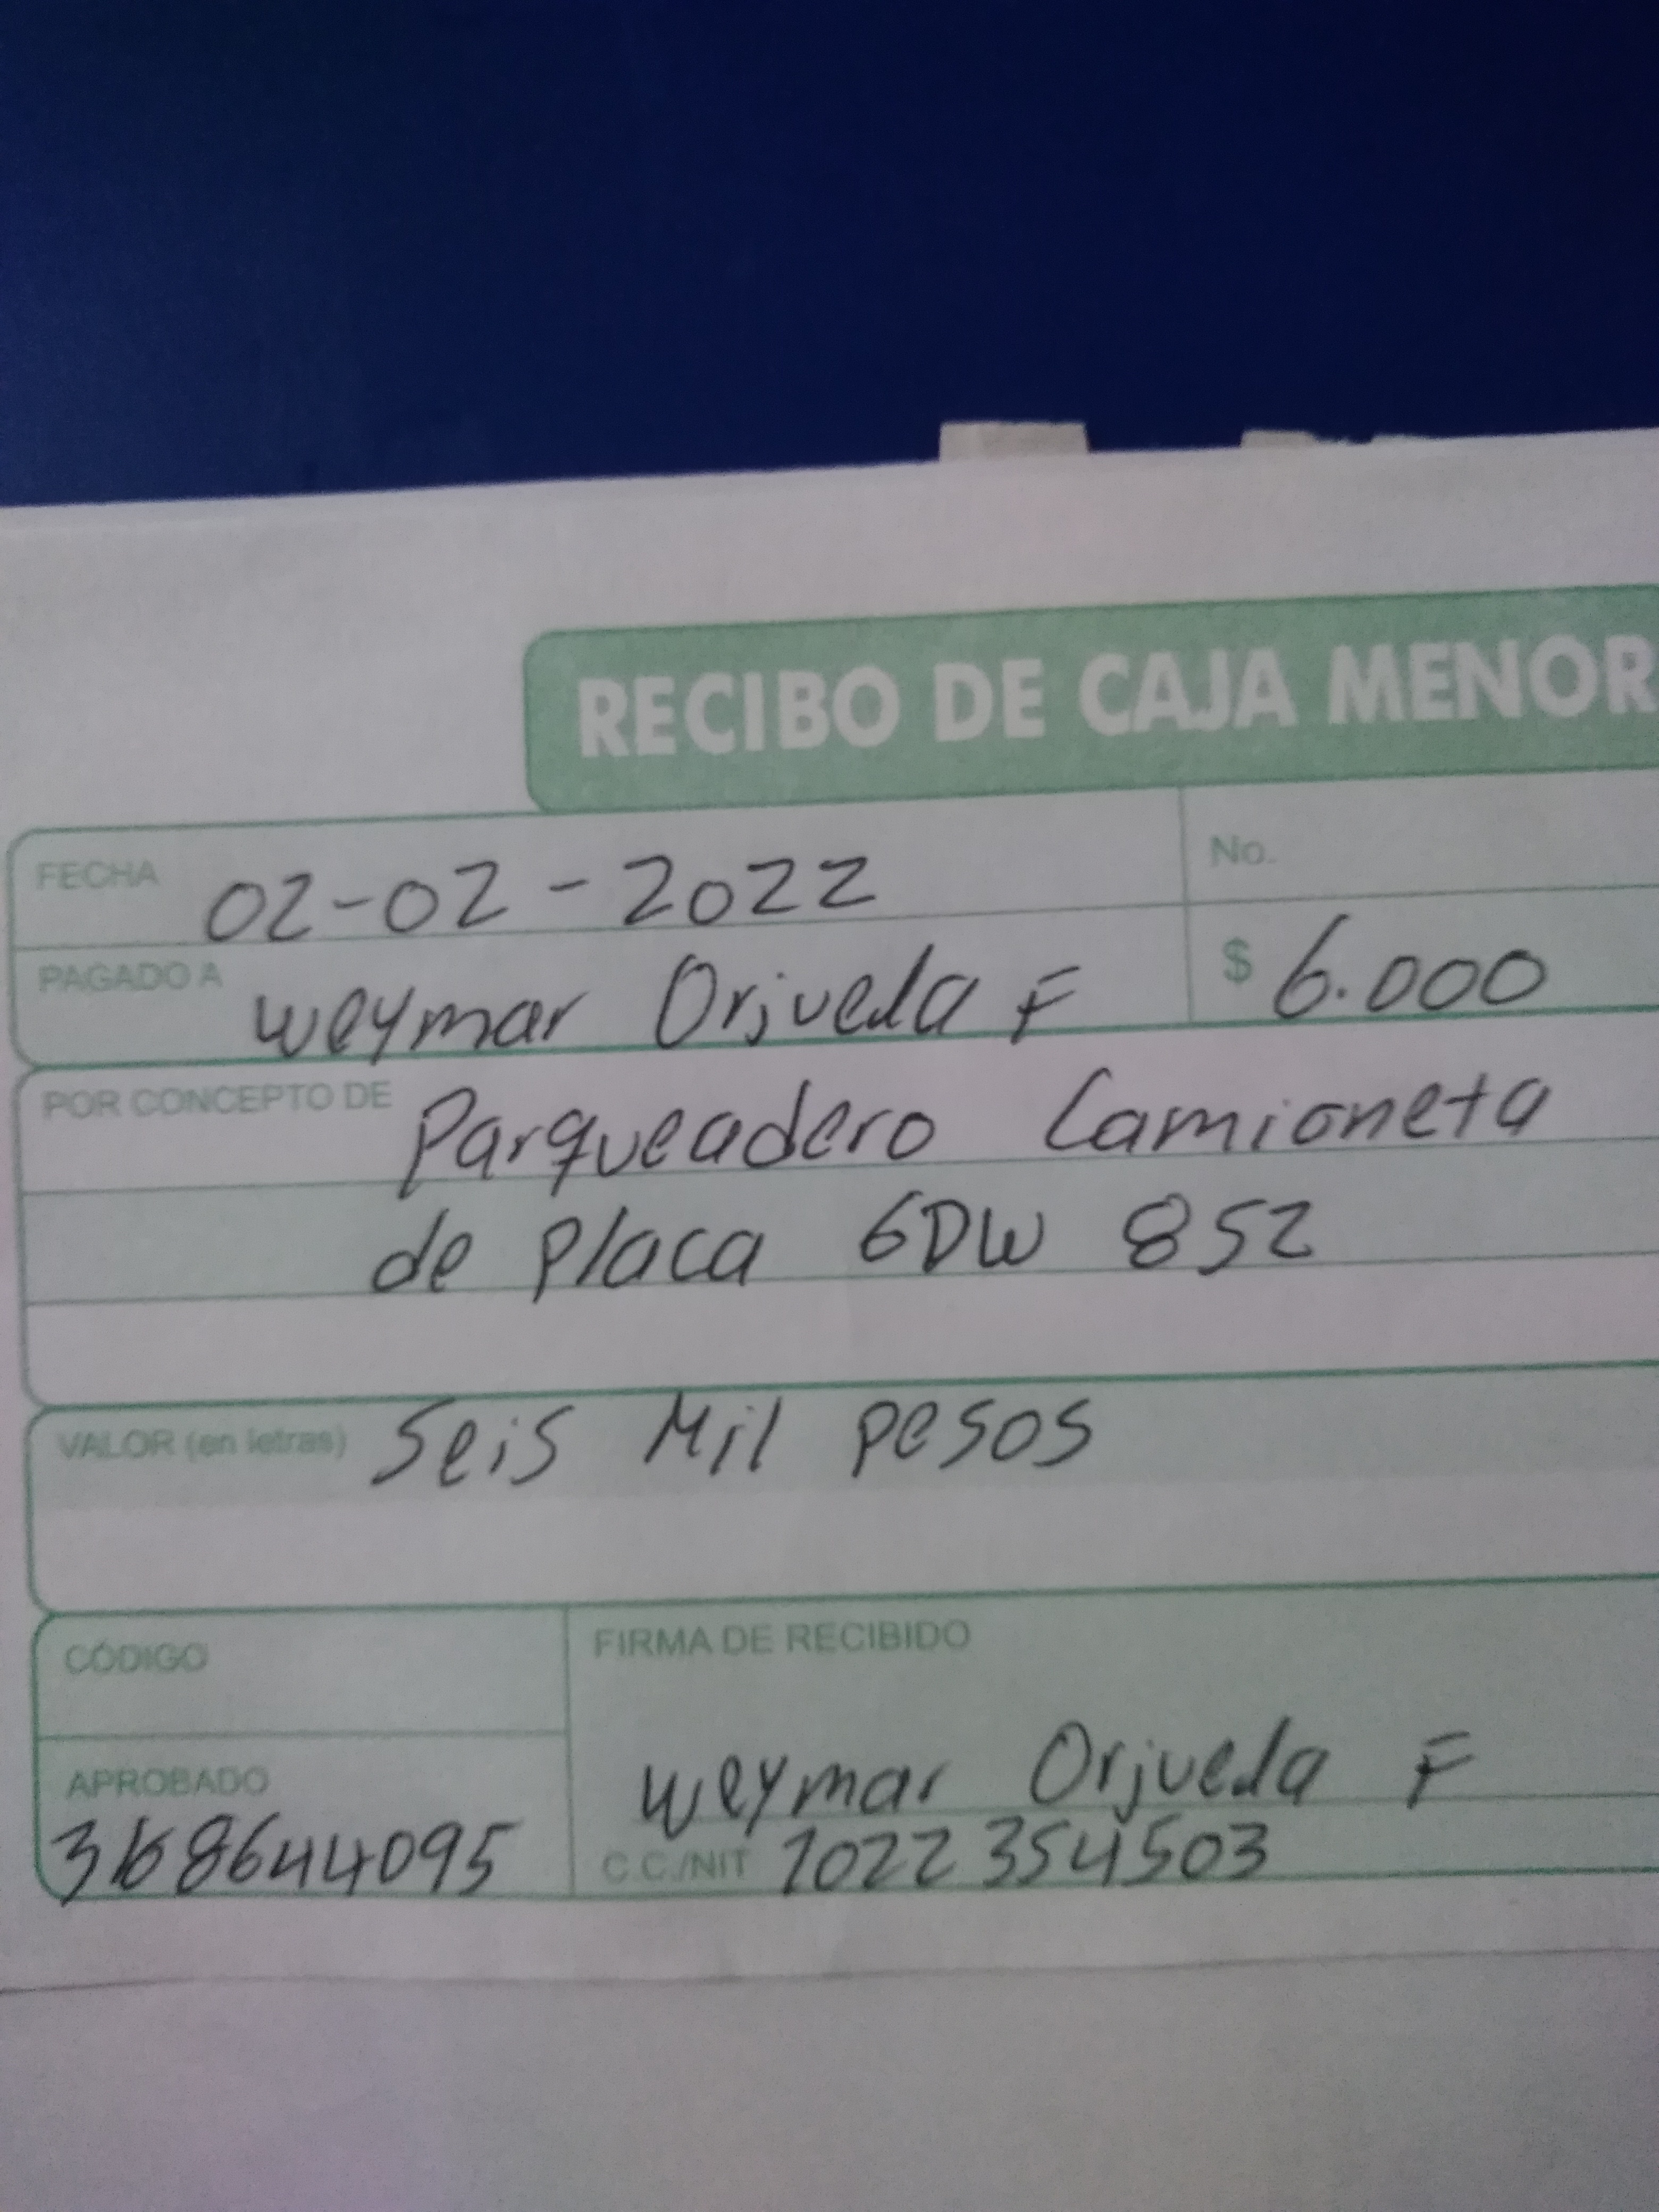 RECIBO DE CAJA MENOR
FECHA 02-02-2022
No.
PAGADO A Weymar Orjuela F
$ 6.000
POR CONCEPTO DE Parqueadero Camioneta
de placa GDW 852
VALOR (en letras) Seis Mil pesos
CÓDIGO
FIRMA DE RECIBIDO
APROBADO
Weymar Orjuela F
C.C./NIT 1022354503